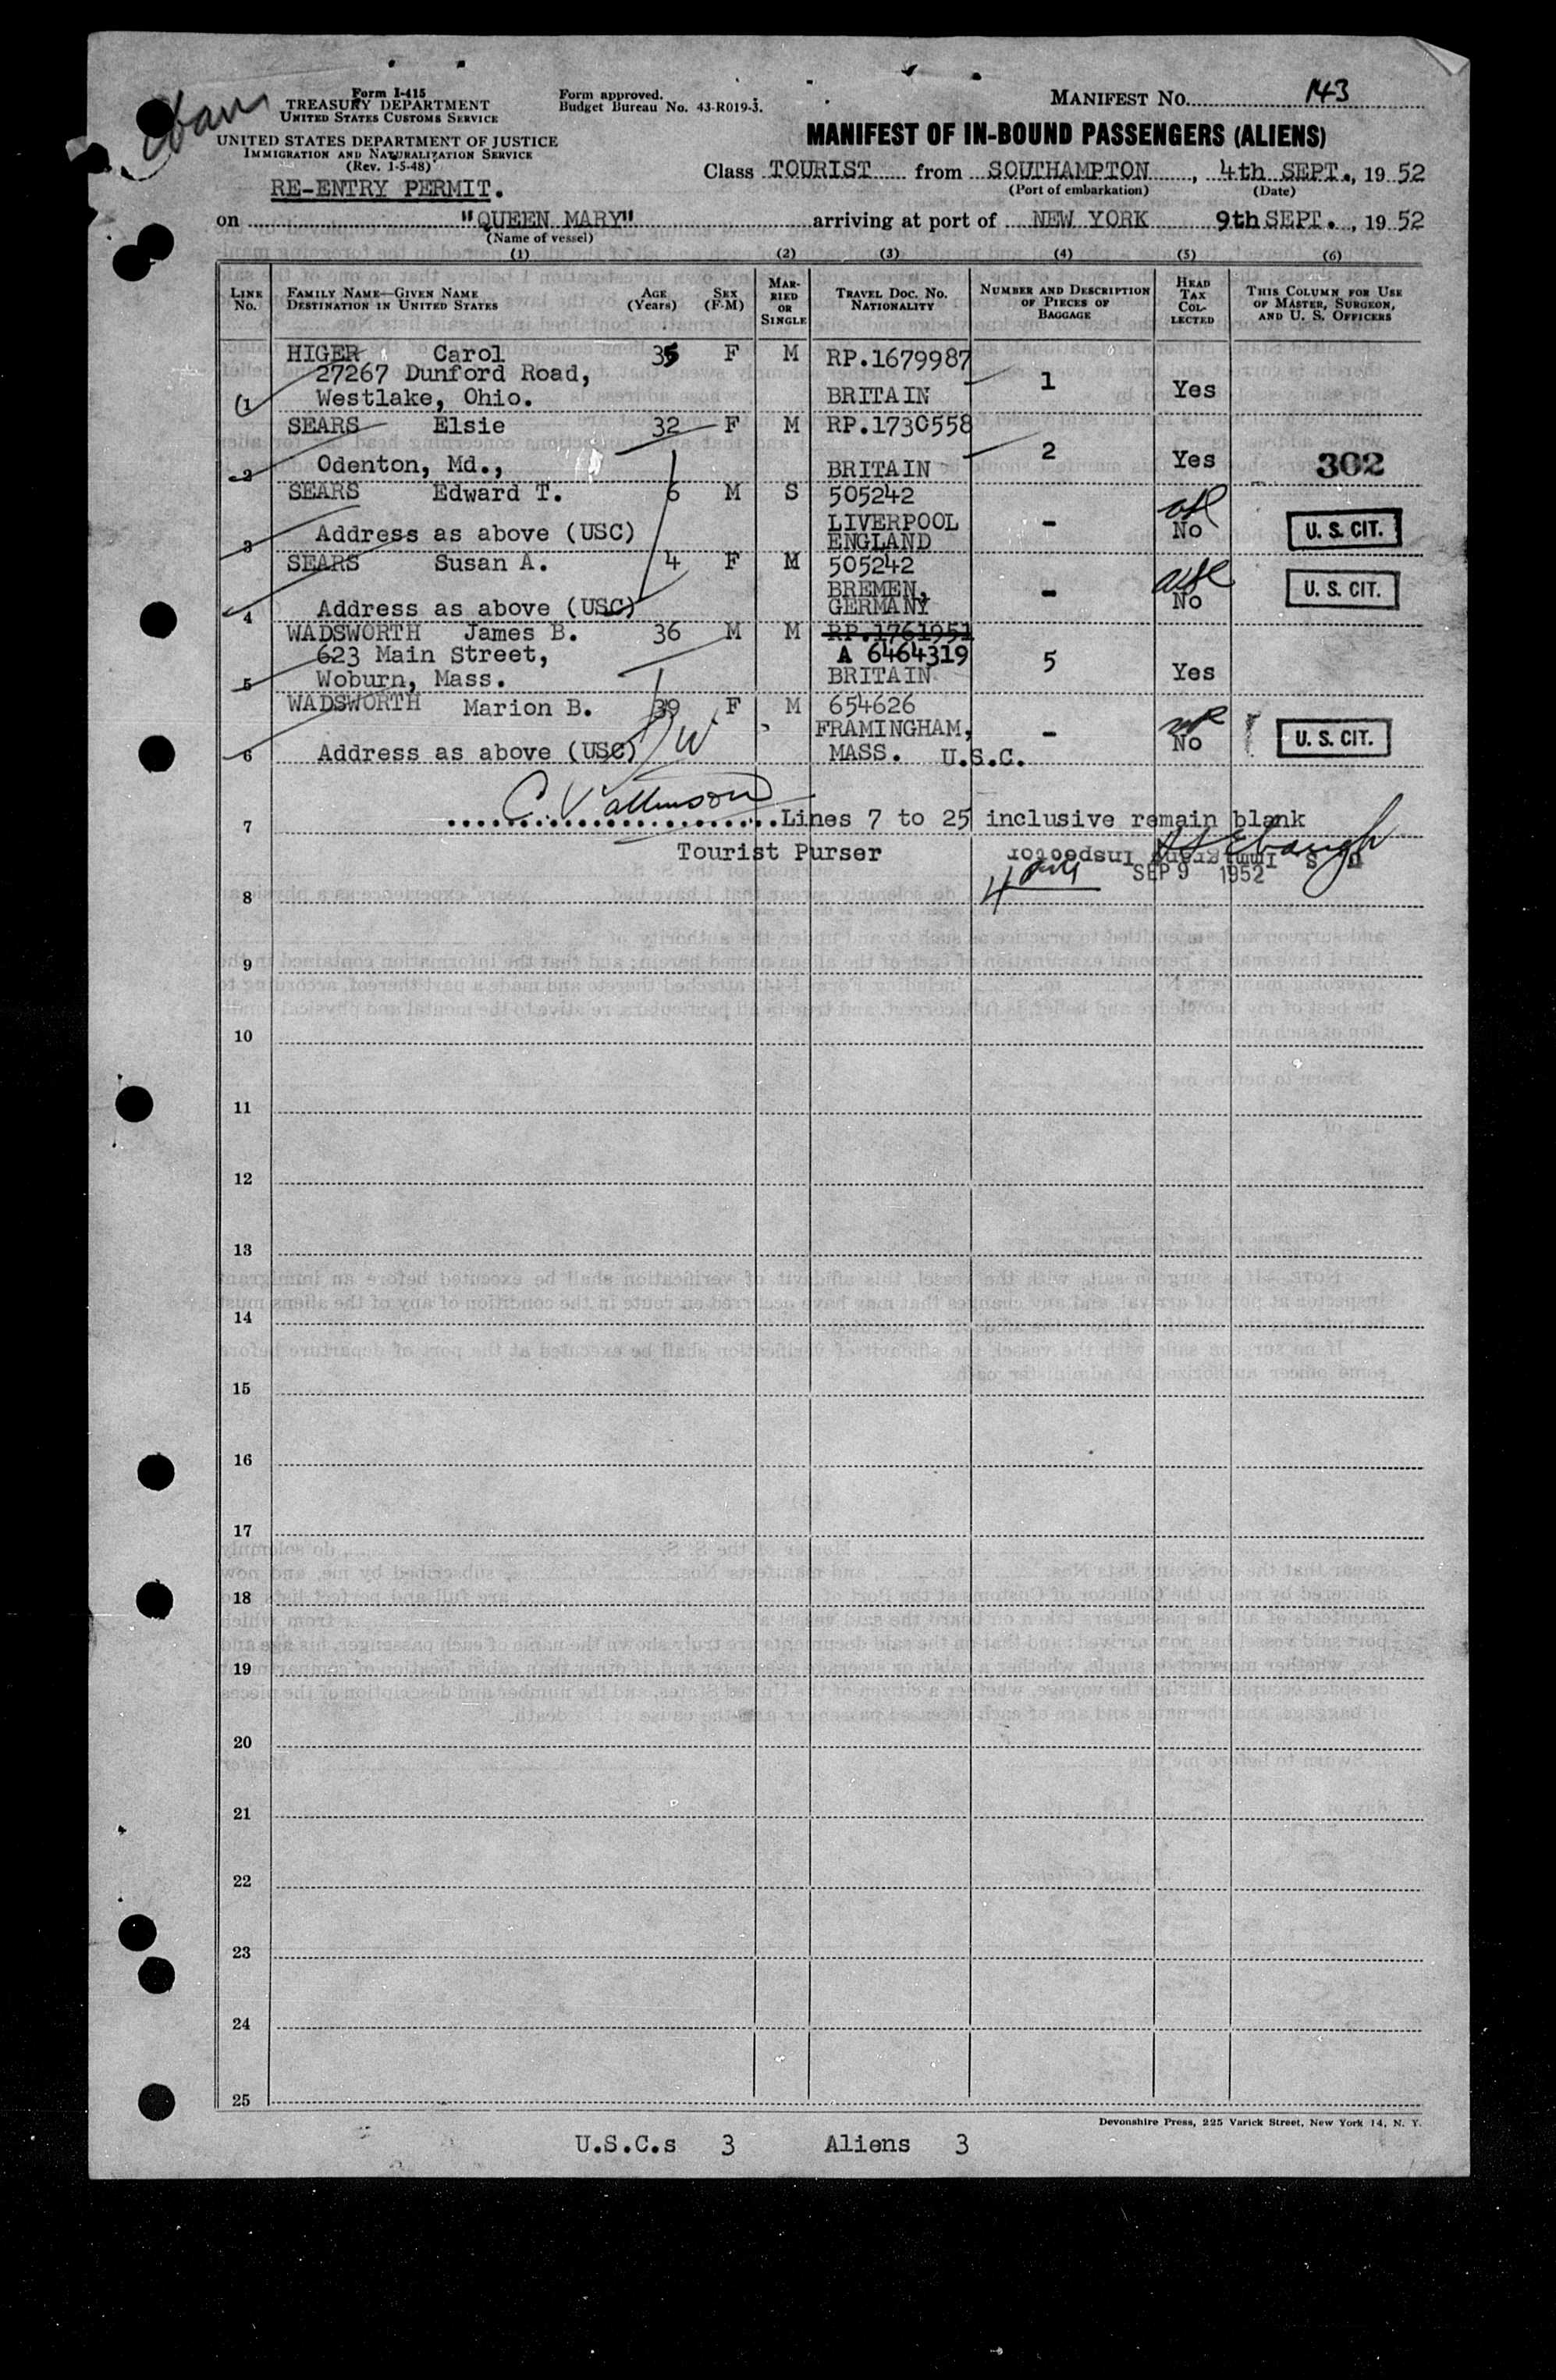 Form I-415
TREASURY DEPARTMENT
UNITED STATES CUSTOMS SERVICE
Form approved.
Budget Bureau No. 43-R019-3.
MANIFEST No. 143
UNITED STATES DEPARTMENT OF JUSTICE
IMMIGRATION AND NATURALIZATION SERVICE
(Rev. 1-5-48)
RE-ENTRY PERMIT.
MANIFEST OF IN-BOUND PASSENGERS (ALIENS)
Class TOURIST from SOUTHAMPTON, 4th SEPT., 1952
(Port of embarkation) (Date)
on "QUEEN MARY" arriving at port of NEW YORK 9th SEPT., 1952
(Name of vessel)
(1) (2) (3) (4) (5) (6)
LINE No. FAMILY NAME—GIVEN NAME DESTINATION IN UNITED STATES AGE (Years) SEX (F-M) MARRIED OR SINGLE TRAVEL DOC. NO. NATIONALITY NUMBER AND DESCRIPTION OF PIECES OF BAGGAGE HEAD TAX COLLECTED THIS COLUMN FOR USE OF MASTER, SURGEON, AND U. S. OFFICERS
HIGER Carol 35 F M RP.1679987
27267 Dunford Road,
1 Westlake, Ohio. BRITAIN 1 Yes
SEARS Elsie 32 F M RP.1730558
2 Odenton, Md., BRITAIN 2 Yes 302
SEARS Edward T. 6 M S 505242
LIVERPOOL
3 Address as above (USC) ENGLAND - No U. S. CIT.
SEARS Susan A. 4 F M 505242
BREMEN,
4 Address as above (USC) GERMANY - No U. S. CIT.
WADSWORTH James B. 36 M M RP.1761951
623 Main Street, A 6464319 5
5 Woburn, Mass. BRITAIN Yes
WADSWORTH Marion B. 39 F M 654626
FRAMINGHAM,
6 Address as above (USC) MASS. U.S.C. - No U. S. CIT.
7 Lines 7 to 25 inclusive remain blank
Tourist Purser
U. S. Immigrant Inspector
SEP 9 1952
8
9
10
11
12
13
14
15
16
17
18
19
20
21
22
23
24
25
Devonshire Press, 225 Varick Street, New York 14, N. Y.
U.S.C.s 3 Aliens 3